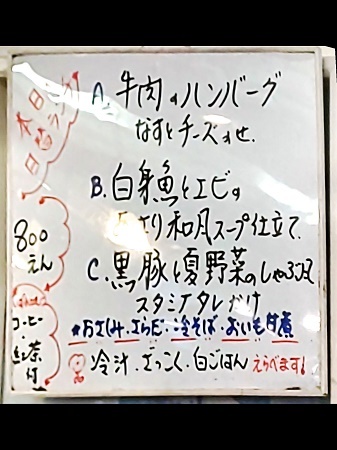 本日
日替
ランチ
800
えん
コーヒー
・
紅茶
付
A. 牛肉のハンバーグ
なすとチーズのせ.
B. 白身魚とエビの
和風スープ仕立て.
C. 黒豚と夏野菜のしゃぶ風
スタミナタレがけ
*おさしみ.さらだ.冷そば.おいも甘煮
冷汁.ざっこく.白ごはん えらべます!